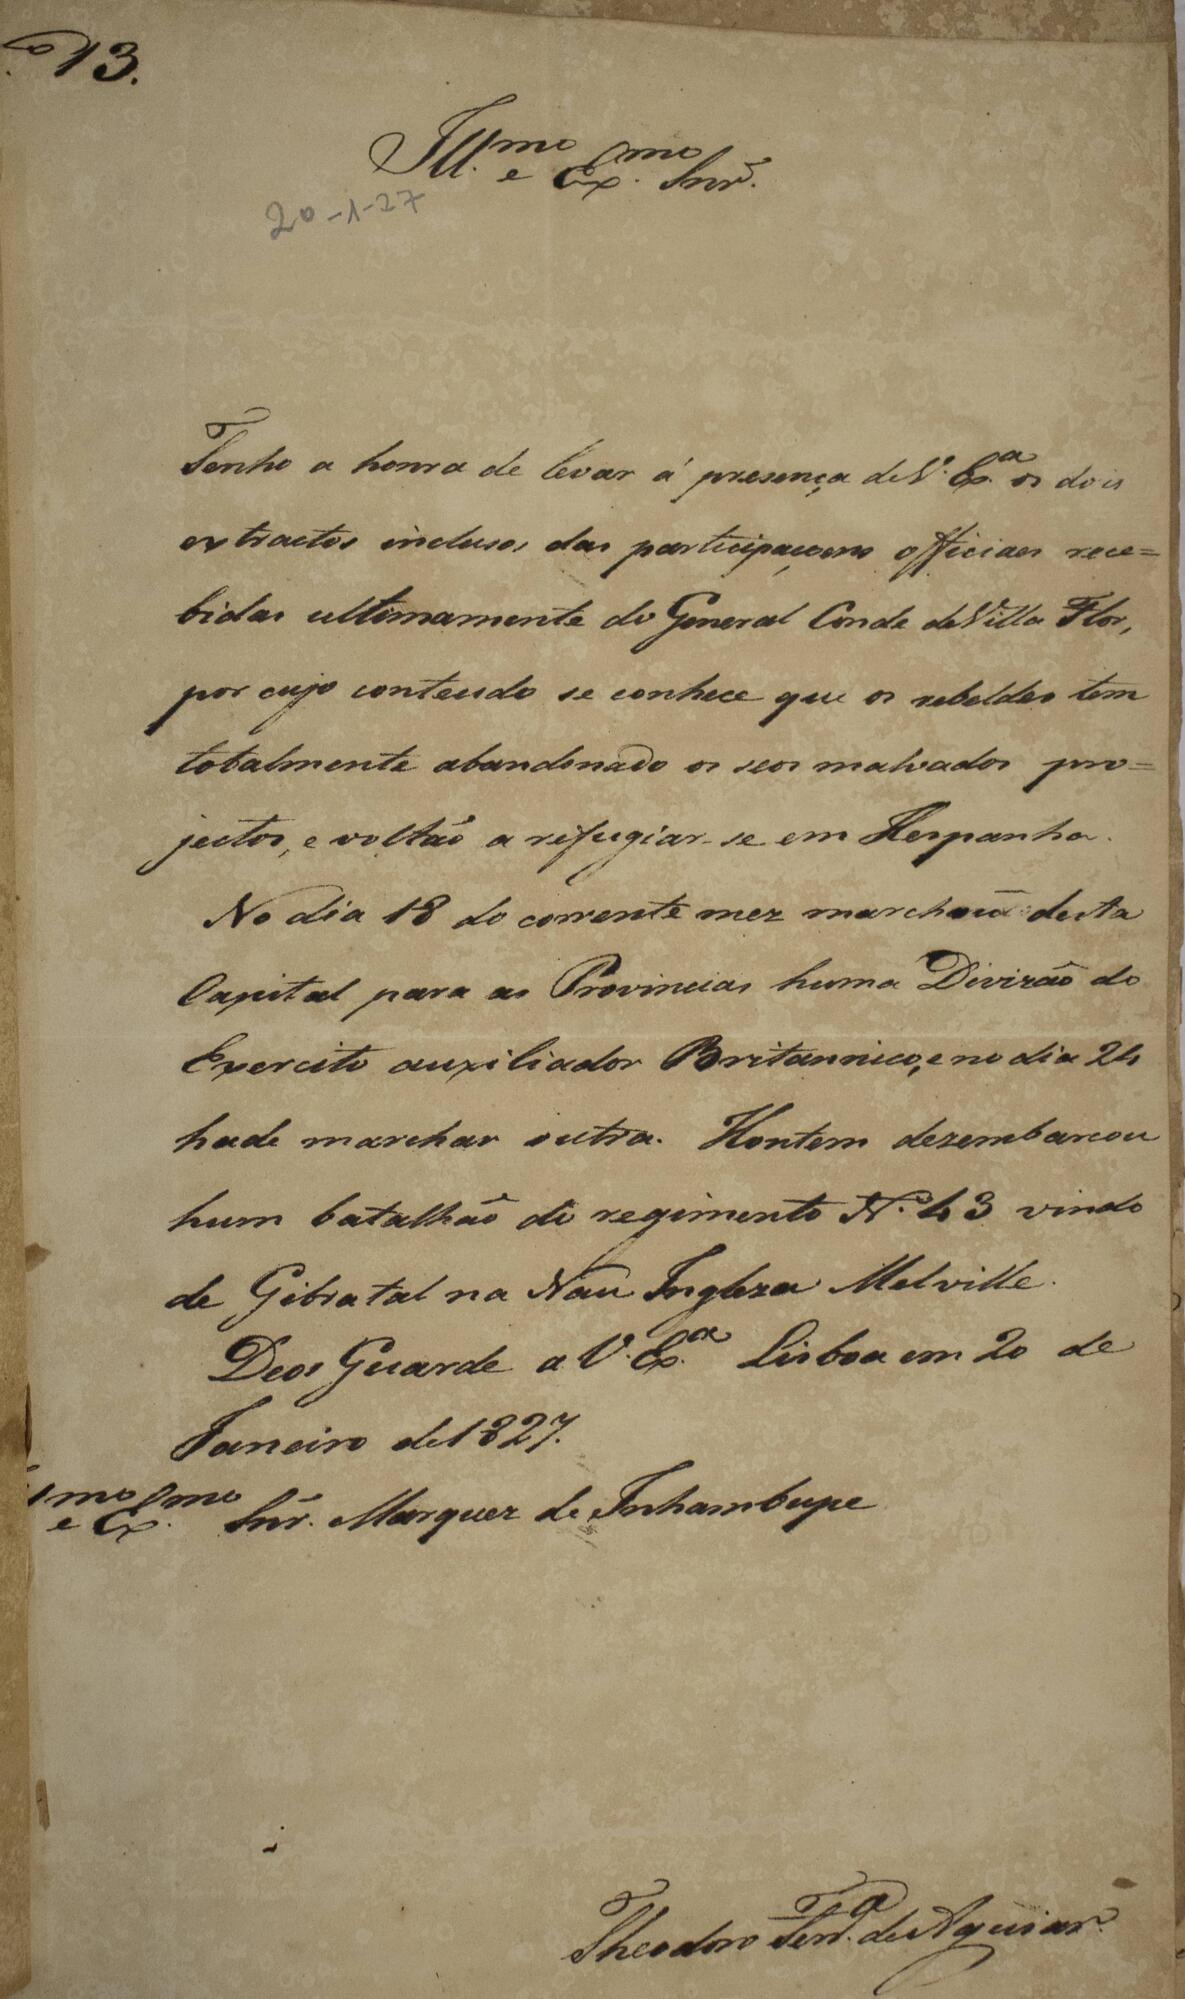 º 13.
Ill.mo e Ex.mo Snr.
20-1-27
Tenho a honra de levar á presença de V. Ex.a os dois
extractos inclusos das participaçoens officiaes rece=
bidas ultimamente do General Conde de Villa Flor,
por cujo conteudo se conhece que os rebeldes tem
totalmente abandonado os seos malvados pro=
jectos, e voltão a refugiar-se em Hespanha.
No dia 18 do corrente mez marchou desta
Capital para as Provincias huma Divizão do
Exercito auxiliador Britannico, e no dia 24
hade marchar outra. Hontem dezembarcou
hum batalhão do regimento N.º 43 vindo
de Gibratal na Nau Ingleza Melville.
Deos Guarde a V. Ex.a Lisboa em 20 de
Janeiro de 1827.
mo e Ex.mo Snr. Marquez de Inhambupe
Theodoro Ferr.a de Aguiar